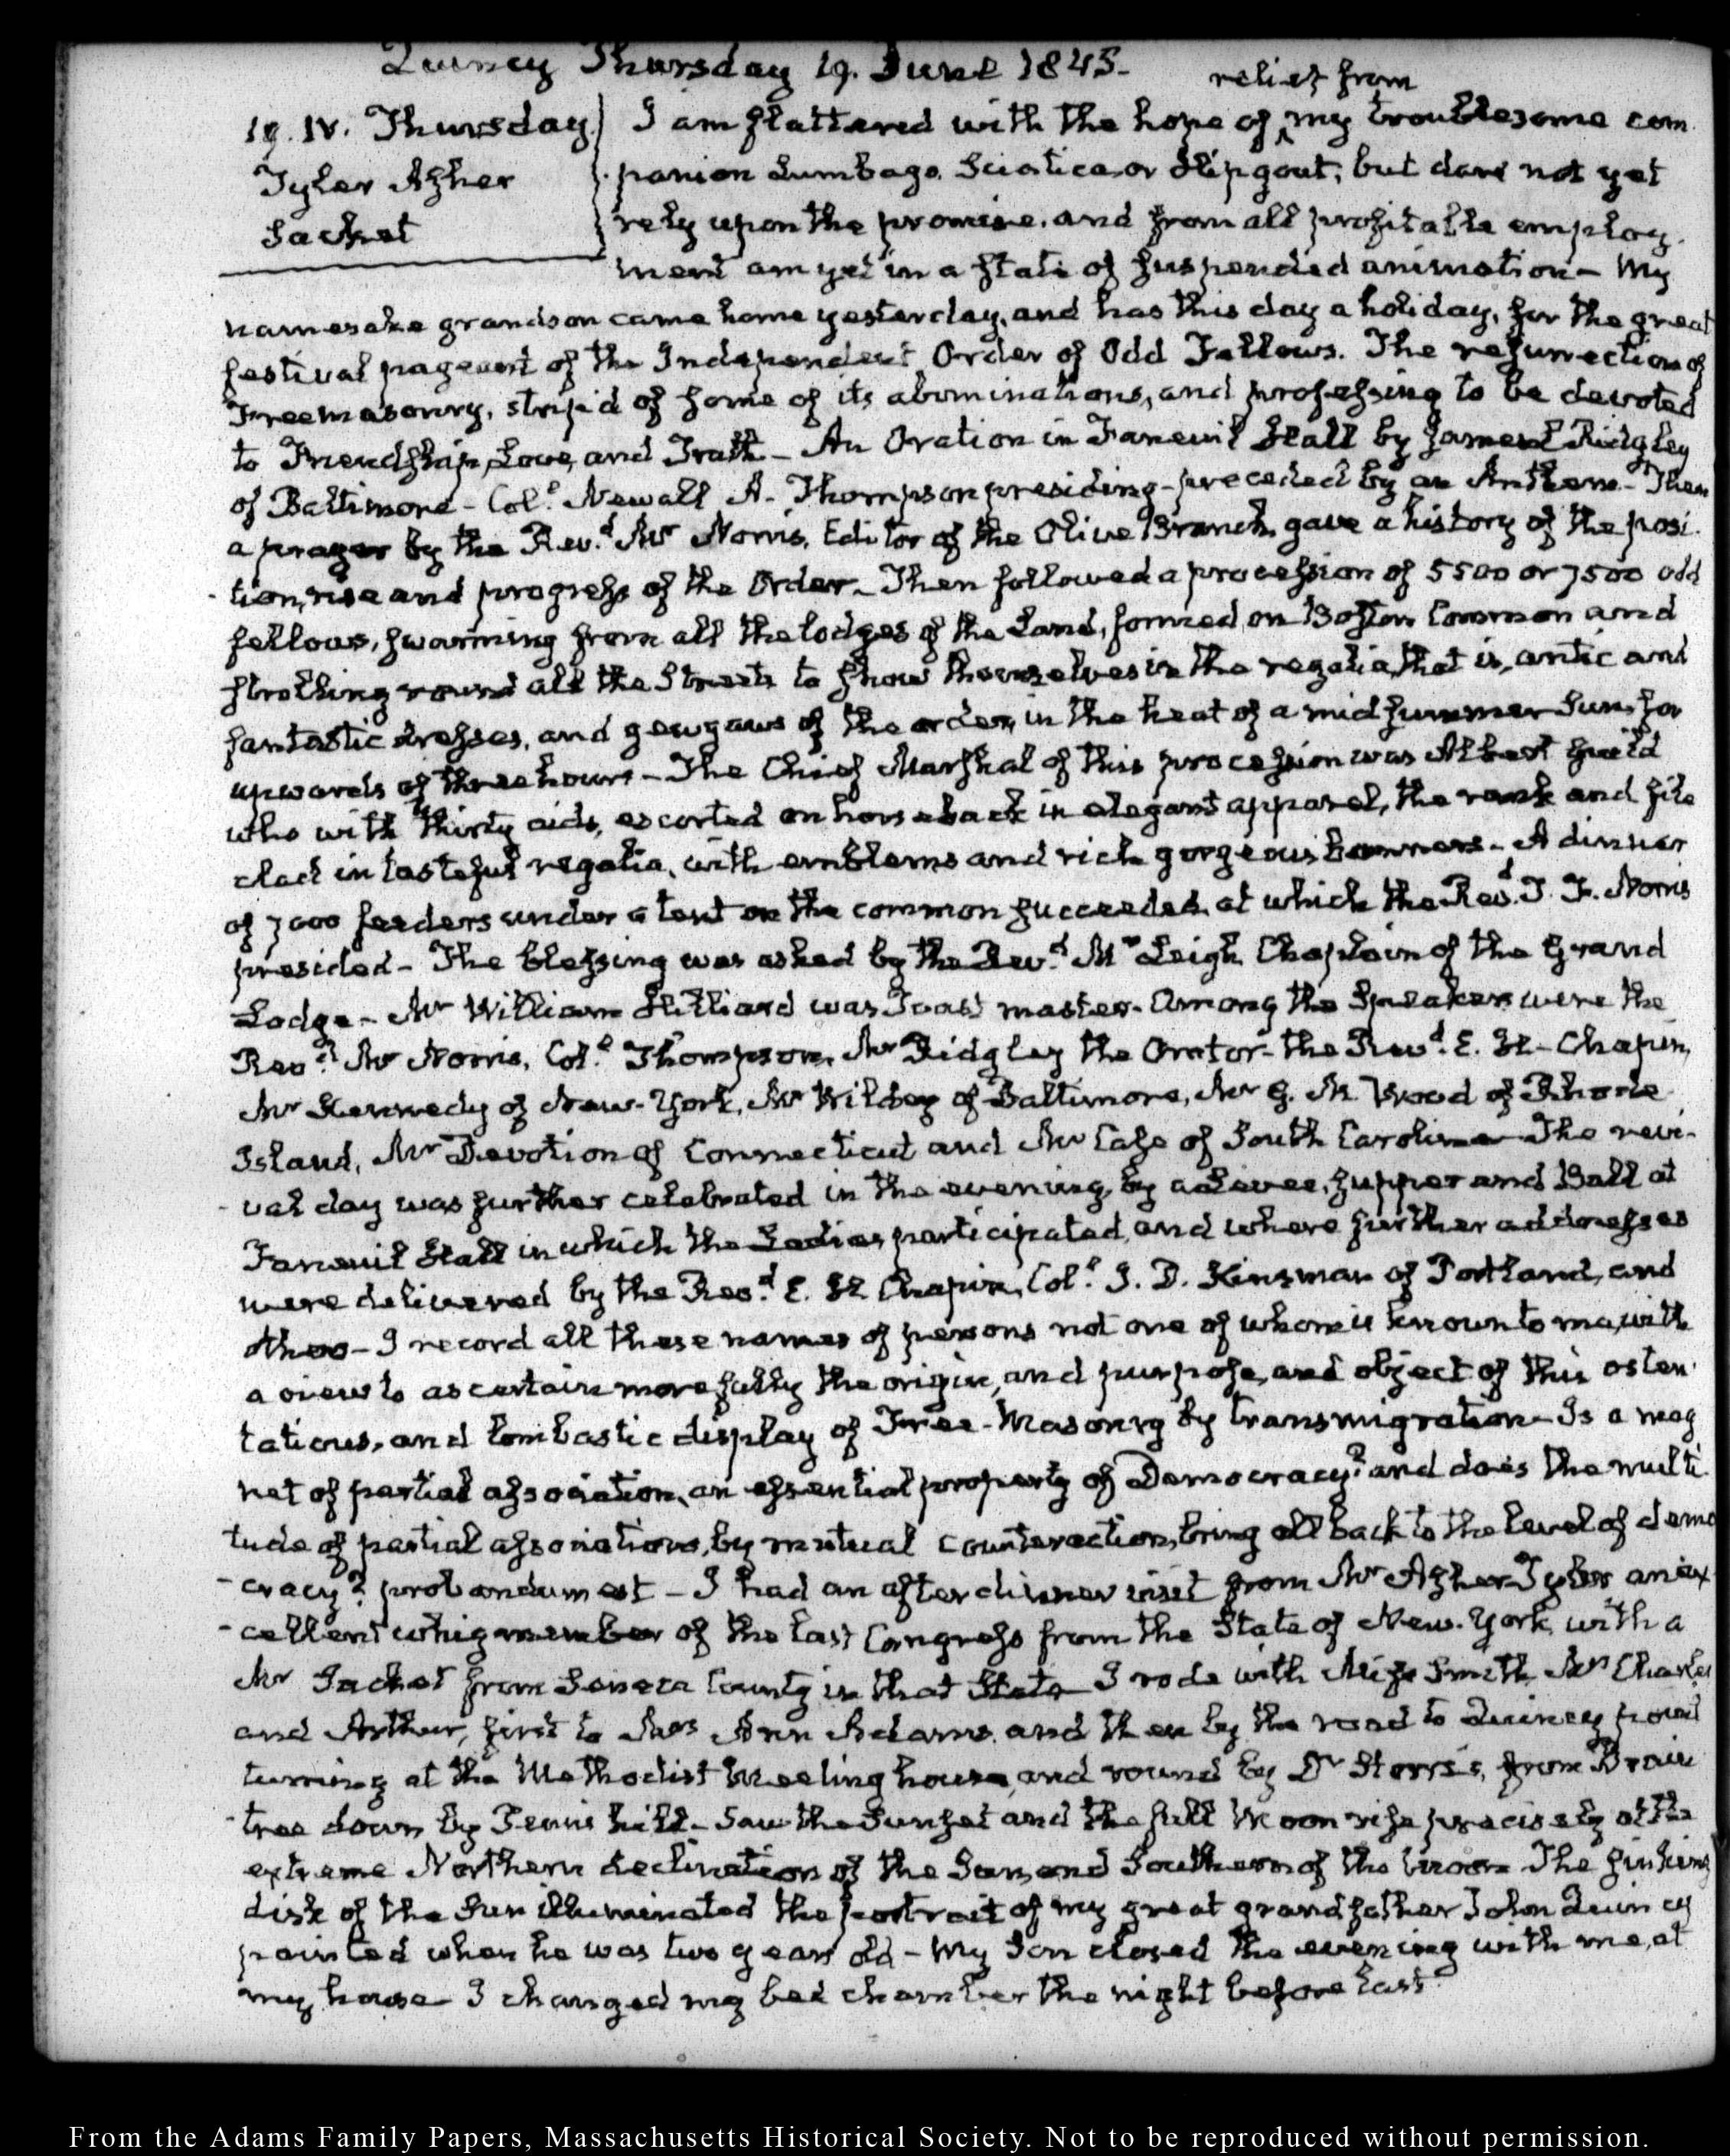 Quincy Thursday 19. June 1845.
relief from
19. IV. Thursday. I am flattered with the hope of my troublesome com
Tyler Asher panion Lumbago, Sciatica, or Hip gout; but dare not yet
Sacket rely upon the promise, and from all profitable employ
ment am yet in a state of suspended animation – My
namesake grandson came home yesterday, and has this day a holiday, for the great
festival pageant of the Independent Order of Odd Fellows. The resurrection of
Freemasonry, strip'd of some of its abominations, and professing to be devoted
to Friendship, Love, and Truth – An Oration in Faneuil Hall by James L Ridgley
of Baltimore – Coll. Newall A. Thompson presiding – preceded by an Anthem – Then
a prayer by the Revd. Mr Norris, Editor of the Olive Branch, gave a history of the posi
tion, rise and progress of the Order – Then followed a procession of 5500 or 7500 odd
fellows, swarming from all the lodges of the Land, formed on Boston Common and
strolling round all the Streets to show themselves in the regalia, that is, antic and
fantastic dresses, and gewgaws of the order, in the heat of a midsummer Sun, for
upwards of three hours – The Chief Marshal of this procession was Albert Guild
who with thirty aids, escorted on horseback in elegant apparel, the rank and file
clad in tasteful regalia, with emblems and rich gorgeous banners – A dinner
of 7000 feeders under a tent on the common succeeded, at which the Revd. T. F. Norris
presided – The blessing was asked by the Revd. Mr Leigh Chaplain of the Grand
Lodge – Mr William Hilliard was Toast master. Among the Speakers were the
Revd. Mr Norris, Coll. Thompson, Mr Ridgley the Orator – the Revd. E. H. Chapin,
Mr Kennedy of New-York, Mr Wildey of Baltimore, Mr G. M. Wood of Rhode
Island, Mr Devotion of Connecticut and Mr Case of South Carolina – The revi
val day was further celebrated in the evening, by a Levee, supper and Ball at
Faneuil Hall in which the Ladies participated, and where further addresses
were delivered by the Revd. E. H Chapin, Coll. J. D. Kinsman of Portland, and
others – I record all these names of persons not one of whom is known to me, with
a view to ascertain more fully the origin, and purpose, and object of this osten
tatious, and bombastic display of Free-Masonry by transmigration – Is a mag
net of partial association, an essential property of Democracy? and does the multi
tude of partial associations, by mutual counteraction, bring all back to the level of demo
cracy? probandum est – I had an after dinner visit from Mr Asher Tyler an ex
cellent whig member of the last Congress from the State of New-York, with a
Mr Sacket from Seneca County in that State I rode with Miss Smith, Mrs Charles
and Arthur, first to Mrs Ann Adams, and then by the road to Quincy point
turning at the Methodist Meeting house, and round by Dr Storrs's, from Brain
tree down by Penn's hill – Saw the Sunset and the full Moon rise precisely at the
extreme Northern declination of the Sun, and Southern of the Moon The sinking
disk of the Sun illuminated the portrait of my great grandfather John Quincy
painted when he was two years old – My Son closed the evening with me, at
my house I changed my bed chamber the night before last
From the Adams Family Papers, Massachusetts Historical Society. Not to be reproduced without permission.